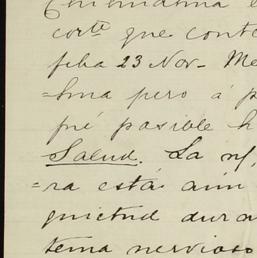 corte que conte
fha 23 Nov- Me
=lma pero á p
pué posible h
Salud. La inf.
=ra está aún
quietud dura
tema nervioso